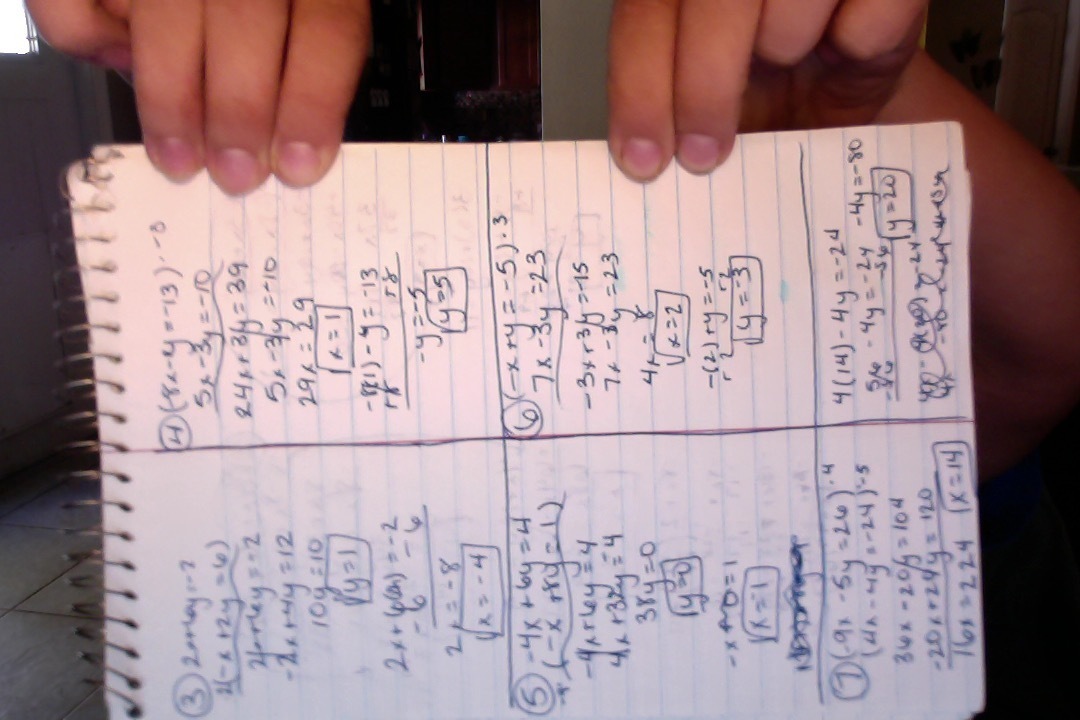 ③ 2x+6y=-2
2(-x+2y=6)
2x+6y=-2
-2x+4y=12
10y=10
y=1
2x+6(1)=-2
-6 -6
2x=-8
x=-4
④ (8x-y=-13)·-3
5x-3y=-10
24x+3y=39
5x-3y=-10
29x=29
x=1
-8(1)-y=-13
+8 +8
-y=-5
y=5
⑤ -4x+6y=4
-4(-x+8y=1)
-4x+6y=4
4x+32y=-4
38y=0
y=0
-x+0=1
x=-1
⑥ (-x+y=-5)·3
7x-3y=23
-3x+3y=-15
7x-3y=23
4x=8
x=2
-(2)+y=-5
+2 +2
y=-3
⑦ (9x-5y=26)·4
(4x-4y=-24)·-5
36x-20y=104
-20x+20y=120
16x=224 x=14
4(14)-4y=-24
56-4y=-24 -4y=-80
-56 -56 y=20